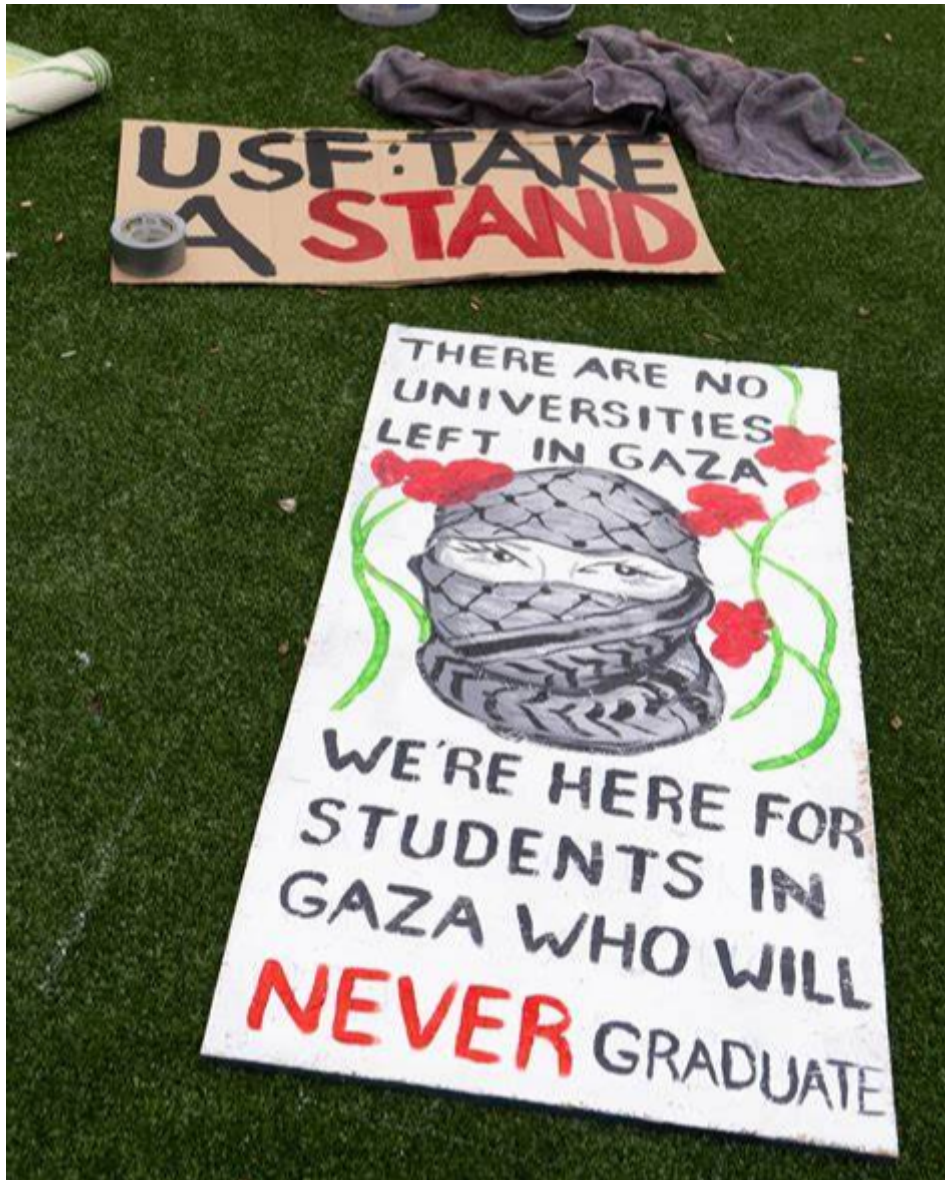 USF: TAKE
A STAND
THERE ARE NO
UNIVERSITIES
LEFT IN GAZA
WE'RE HERE FOR
STUDENTS IN
GAZA WHO WILL
NEVER GRADUATE